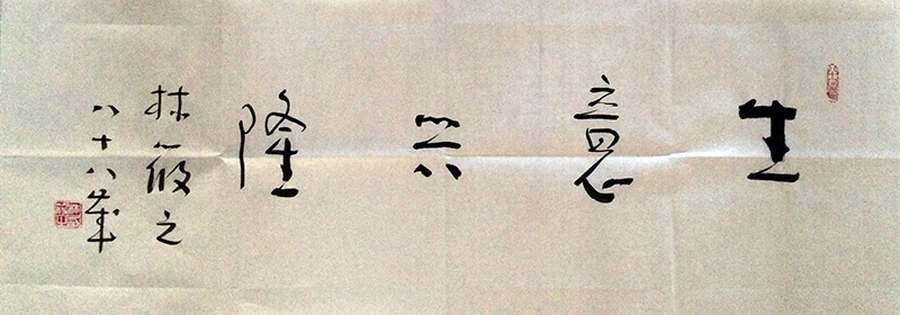 生意兴隆
林筱之
八十八岁